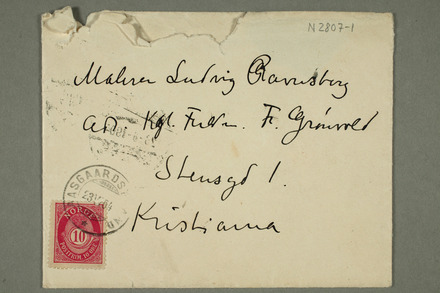 N 2807-1
Maleren Ludvig Ravensberg
adr Kgl. Fuldm. Fr. Grønvold
Stensgd 1.
Kristiania
AASGAARDS
NORGE
10
POSTFRIM. 10 ØRE